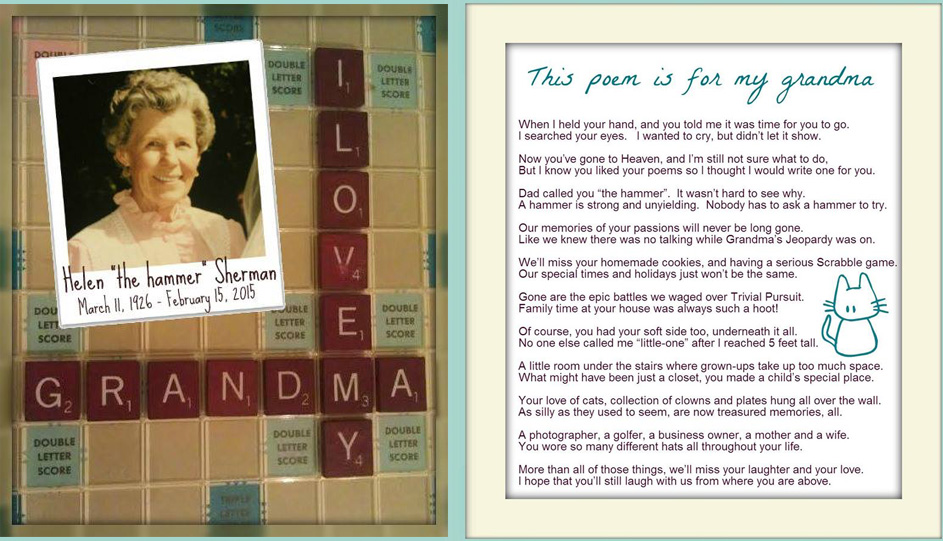 SCORE
DOUBLE
DOUBLE
LETTER
SCORE
DOUBLE
LETTER
SCORE
I1
L1
O1
V4
E1
M3
Y4
Helen "the hammer" Sherman
March 11, 1926 - February 15, 2015
SCORE
LETTER
SCORE
DOUBLE
LETTER
SCORE
G2 R1 A1 N1 D2 M3 A1
DOUBLE
LETTER
SCORE
DOUBLE
LETTER
SCORE
DOUBLE
LETTER
SCORE
TRIPLE
LETTER
This poem is for my grandma
When I held your hand, and you told me it was time for you to go.
I searched your eyes. I wanted to cry, but didn't let it show.
Now you've gone to Heaven, and I'm still not sure what to do,
But I know you liked your poems so I thought I would write one for you.
Dad called you “the hammer”. It wasn't hard to see why.
A hammer is strong and unyielding. Nobody has to ask a hammer to try.
Our memories of your passions will never be long gone.
Like we knew there was no talking while Grandma's Jeopardy was on.
We'll miss your homemade cookies, and having a serious Scrabble game.
Our special times and holidays just won't be the same.
Gone are the epic battles we waged over Trivial Pursuit.
Family time at your house was always such a hoot!
Of course, you had your soft side too, underneath it all.
No one else called me “little-one” after I reached 5 feet tall.
A little room under the stairs where grown-ups take up too much space.
What might have been just a closet, you made a child's special place.
Your love of cats, collection of clowns and plates hung all over the wall.
As silly as they used to seem, are now treasured memories, all.
A photographer, a golfer, a business owner, a mother and a wife.
You wore so many different hats all throughout your life.
More than all of those things, we'll miss your laughter and your love.
I hope that you'll still laugh with us from where you are above.